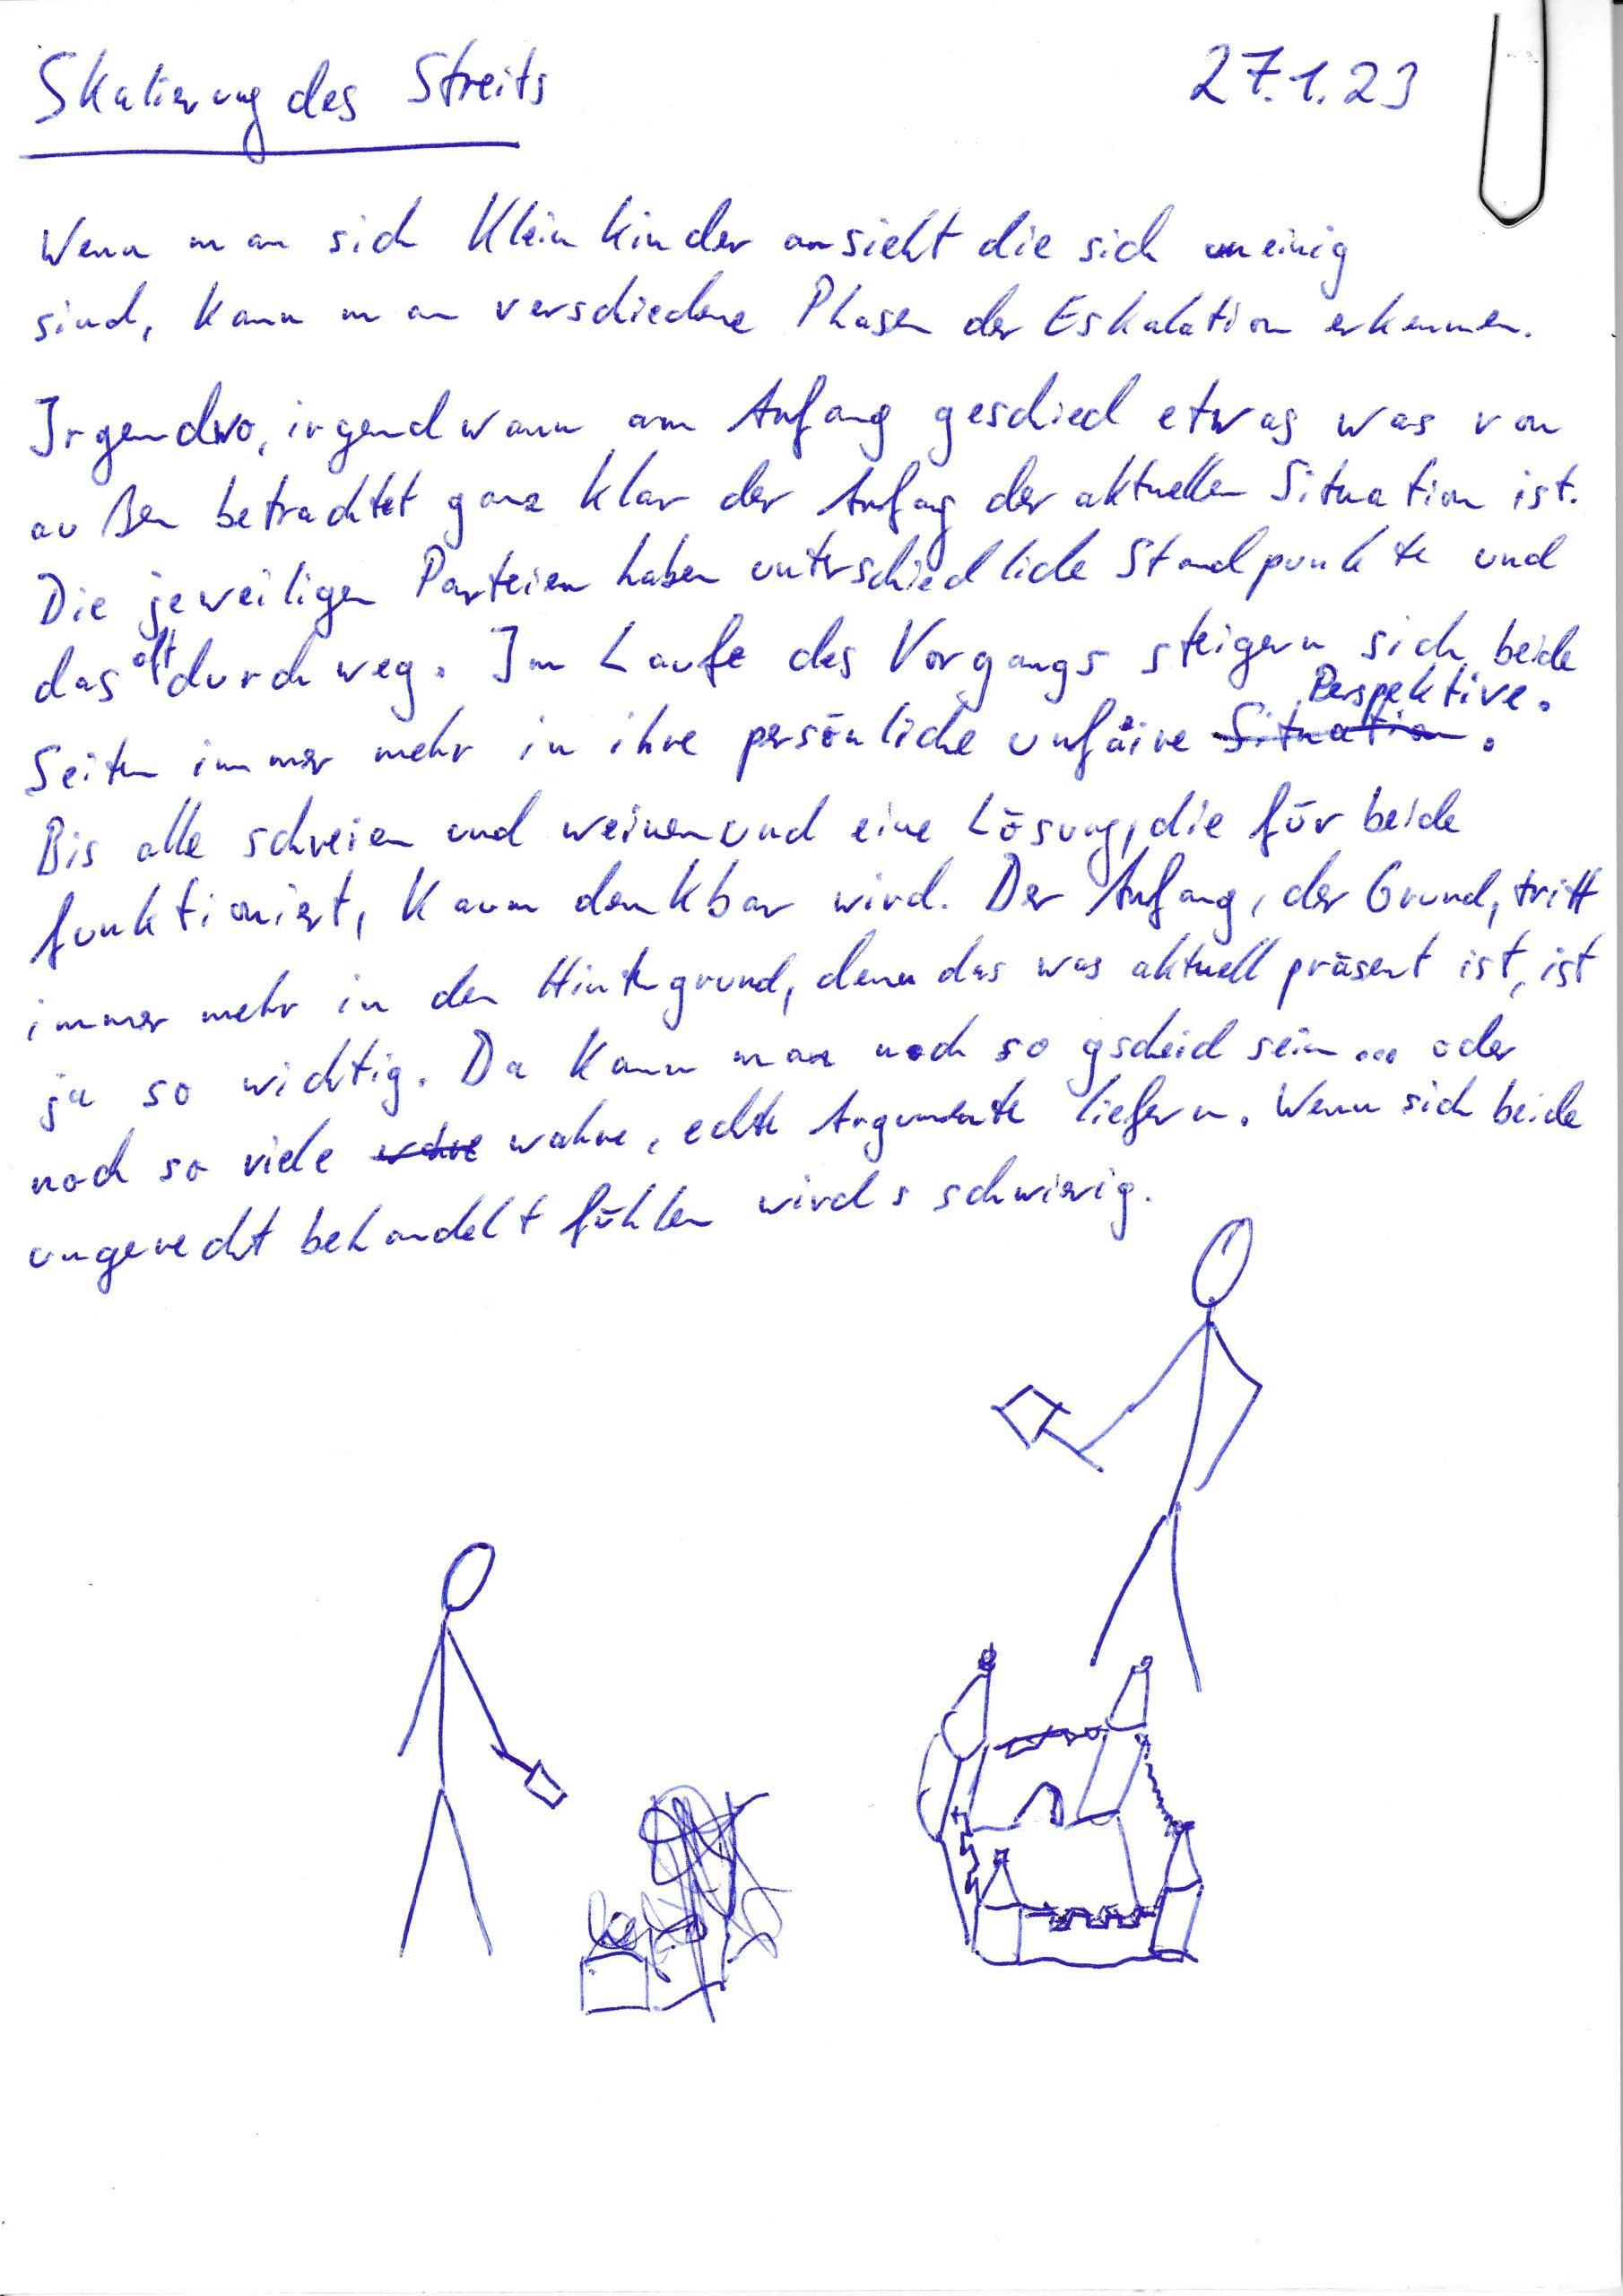 Skalierung des Streits 27.1.23
Wenn man sich Kleinkinder ansieht die sich uneinig
sind, kann man verschiedene Phasen der Eskalation erkennen.
Irgendwo, irgendwann am Anfang geschied etwas was von
außen betrachtet ganz klar der Anfang der aktuellen Situation ist.
Die jeweiligen Parteien haben unterschiedliche Standpunkte und
das oft durchweg. Im Laufe des Vorgangs steigern sich beide
Seiten immer mehr in ihre persönliche unfaire Situation. Perspektive.
Bis alle schreien und weinen und eine Lösung, die für beide
funktioniert, kaum denkbar wird. Der Anfang, der Grund, tritt
immer mehr in den Hintergrund, denn das was aktuell präsent ist, ist
ja so wichtig. Da kann man noch so gscheid sein... oder
noch so viele wahre, echte Argumente liefern. Wenn sich beide
ungerecht behandelt fühlen wirds schwierig.